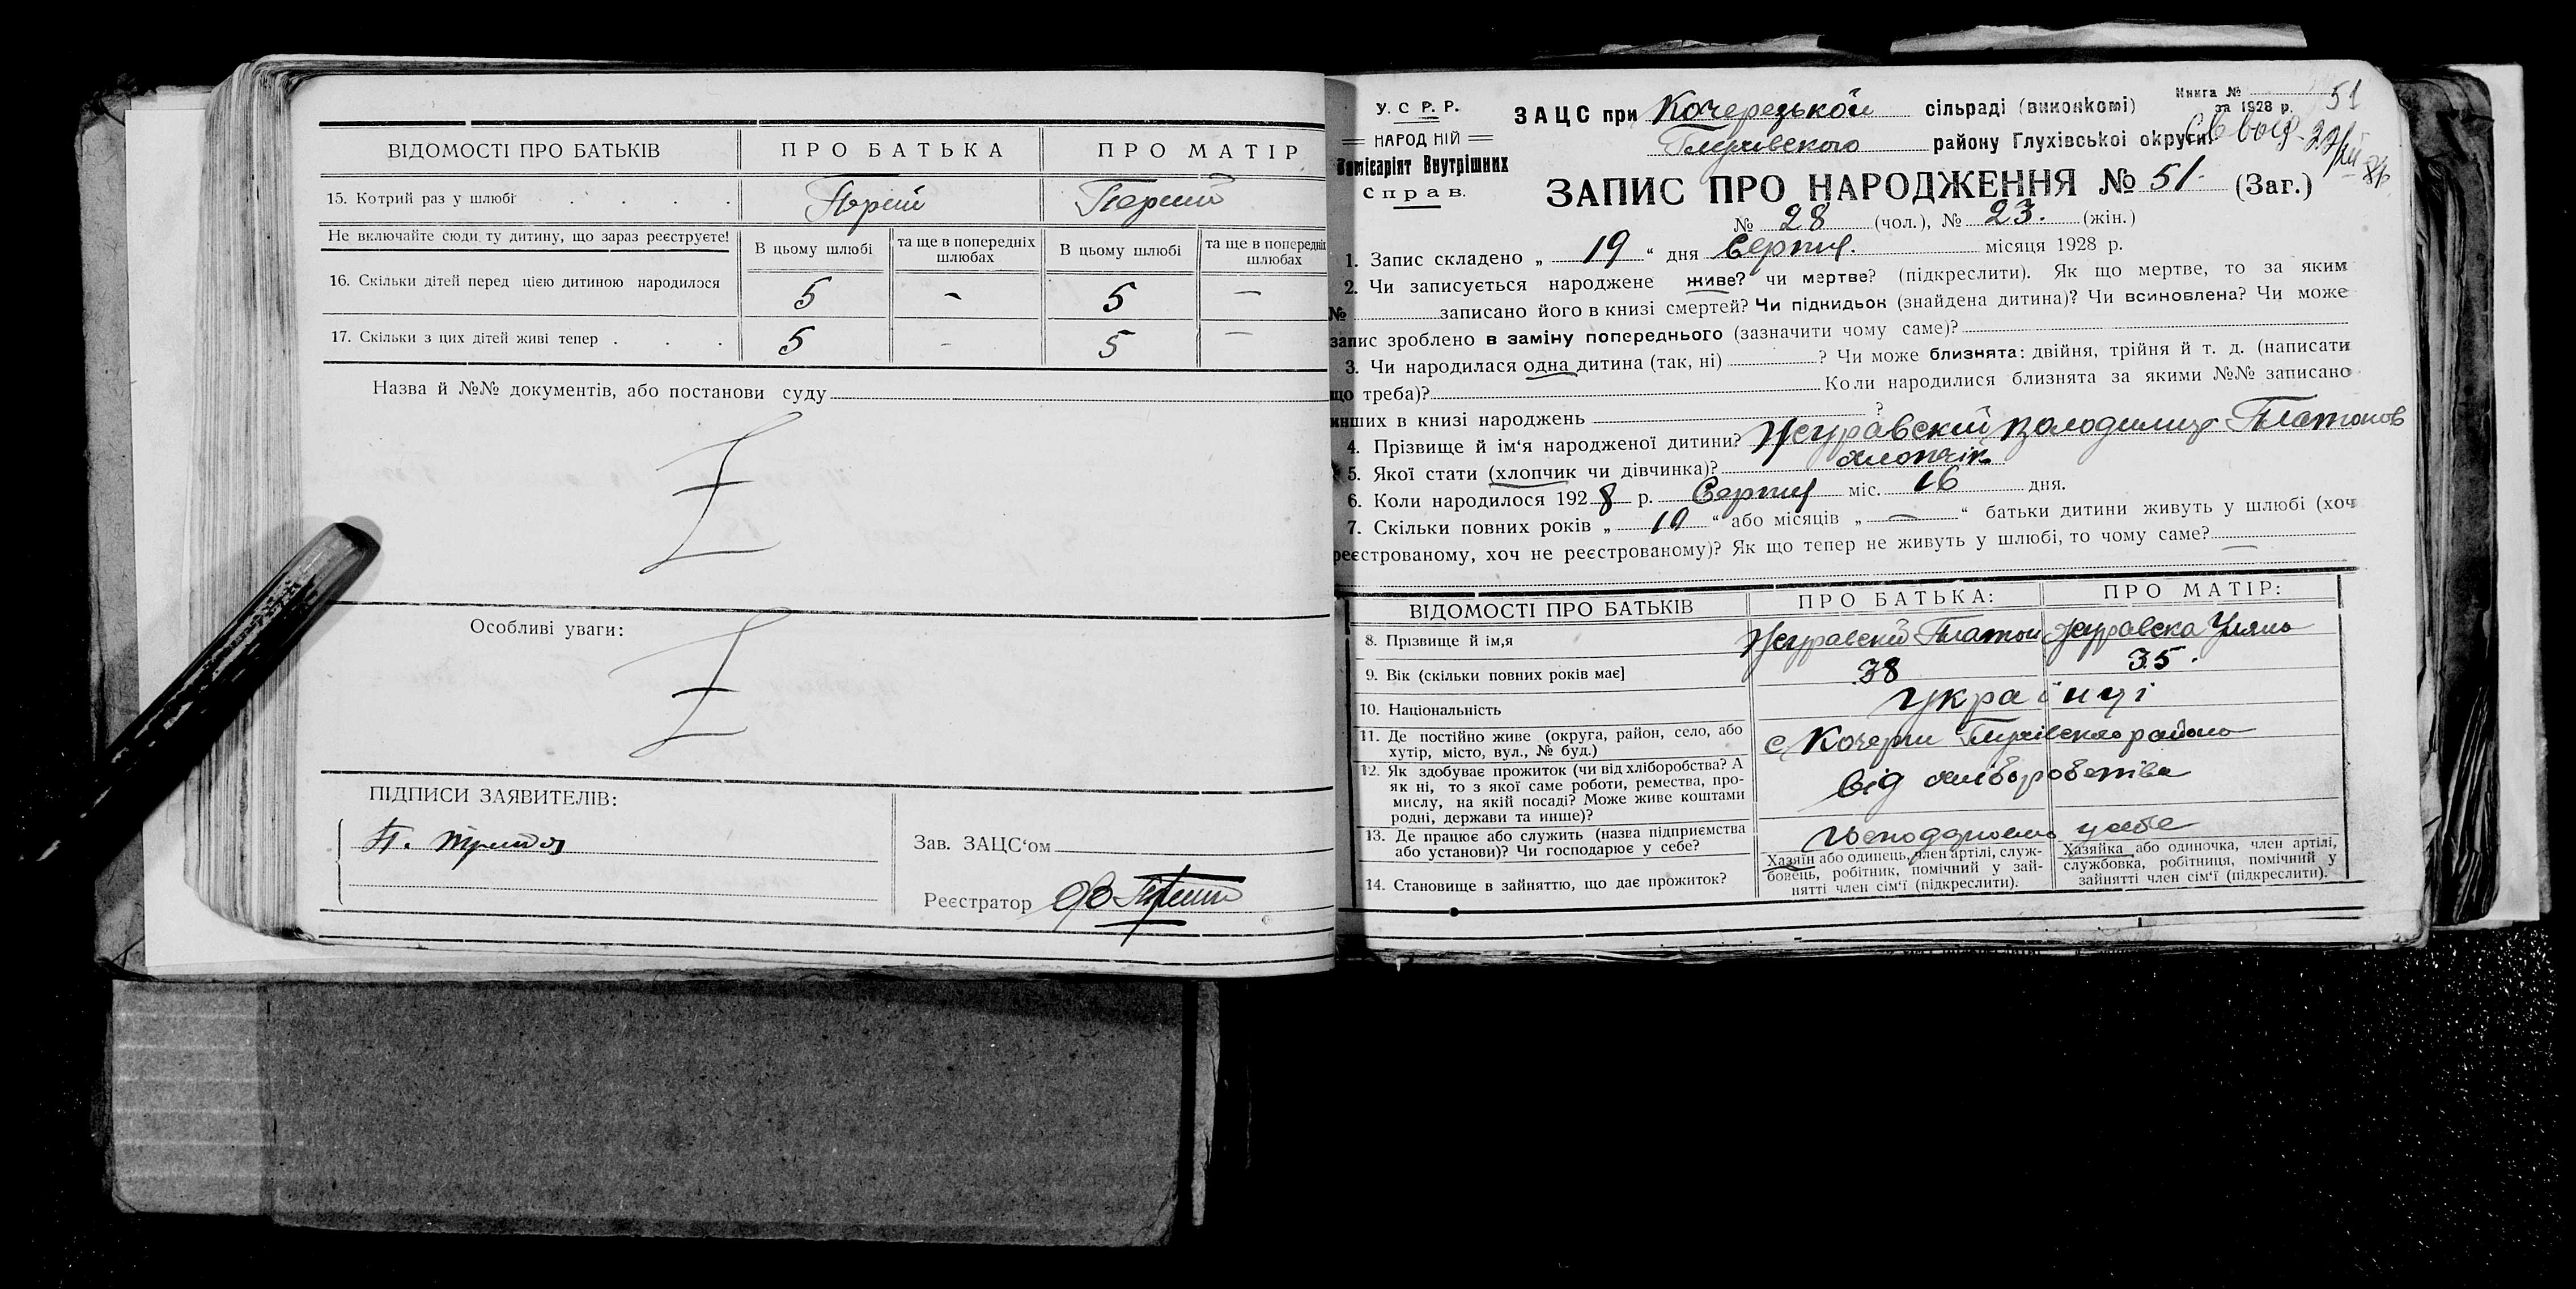 ВІДОМОСТІ ПРО БАТЬКІВ ПРО БАТЬКА ПРО МАТІР
15. Котрий раз у шлюбі . . . . Перший
Не включайте сюди ту дитину, що зараз реєструєте! В цьому шлюбі та ще в попередніх шлюбах В цьому шлюбі та ще в попередніх шлюбах
16. Скільки дітей перед цією дитиною народилося 5 - 5 —
17. Скільки з цих дітей живі тепер . . . 5 - 5 —
Назва й №№ документів, або постанови суду
Z
Особливі уваги:
Z
ПІДПИСИ ЗАЯВИТЕЛІВ:
Зав. ЗАЦС‘ом
Реєстратор
У.С.Р.Р.
НАРОДНІЙ
Комісаріят Внутрішних
Справ.
Книга № 51
за 1928 р.
ЗАЦС при Кочерецькой сільраді (виконкомі)
Глухівского району Глухівської округи
ЗАПИС ПРО НАРОДЖЕННЯ № 51. (Заг.)
№ 28 (чол.), № 23. (жін.)
1. Запис складено „ 19 “ дня Серпня. місяця 1928 р.
2. Чи записується народжене живе? чи мертве? (підкреслити). Як що мертве, то за яким
№ записано його в книзі смертей? Чи підкидьок (знайдена дитина)? Чи всиновлена? Чи може
запис зроблено в заміну попереднього (зазначити чому саме)?
3. Чи народилася одна дитина (так, ні) ? Чи може близнята: двійня, трійня й т. д. (написати
що треба)? Коли народилися близнята за якими №№ записано
инших в книзі народжень ?
4. Прізвище й ім‘я народженої дитини? Журавский Володимир Платонов
5. Якої стати (хлопчик чи дівчинка)? хлопчік
6. Коли народилося 1928 р. Серпня міс. 16 дня.
7. Скільки повних років „ 10 “ або місяців „ — “ батьки дитини живуть у шлюбі (хоч
реєстрованому, хоч не реєстрованому)? Як що тепер не живуть у шлюбі, то чому саме? —
ВІДОМОСТІ ПРО БАТЬКІВ ПРО БАТЬКА: ПРО МАТІР:
8. Прізвище й ім,я Журавский Платон Журавска Уляна
9. Вік (скільки повних років має] 38 35.
10. Національність українці
11. Де постійно живе (округа, район, село, або
хутір, місто, вул., № буд.) с. Кочерги Глухівского району
12. Як здобуває прожиток (чи від хліборобства? А
як ні, то з якої саме роботи, ремества, про-
мислу, на якій посаді? Може живе коштами
родні, держави та инше)? від хліборобства
13. Де працює або служить (назва підприємства
або установи)? Чи господарює у себе? у себе
14. Становище в зайняттю, що дає прожиток?
Хазяїн або одинець, член артілі, служ-
бовець, робітник, помічний у зай-
нятті член сім‘ї (підкреслити).
Хазяйка або одиночка, член артілі,
службовка, робітниця, помічний у
зайнятті член сім‘ї (підкреслити).